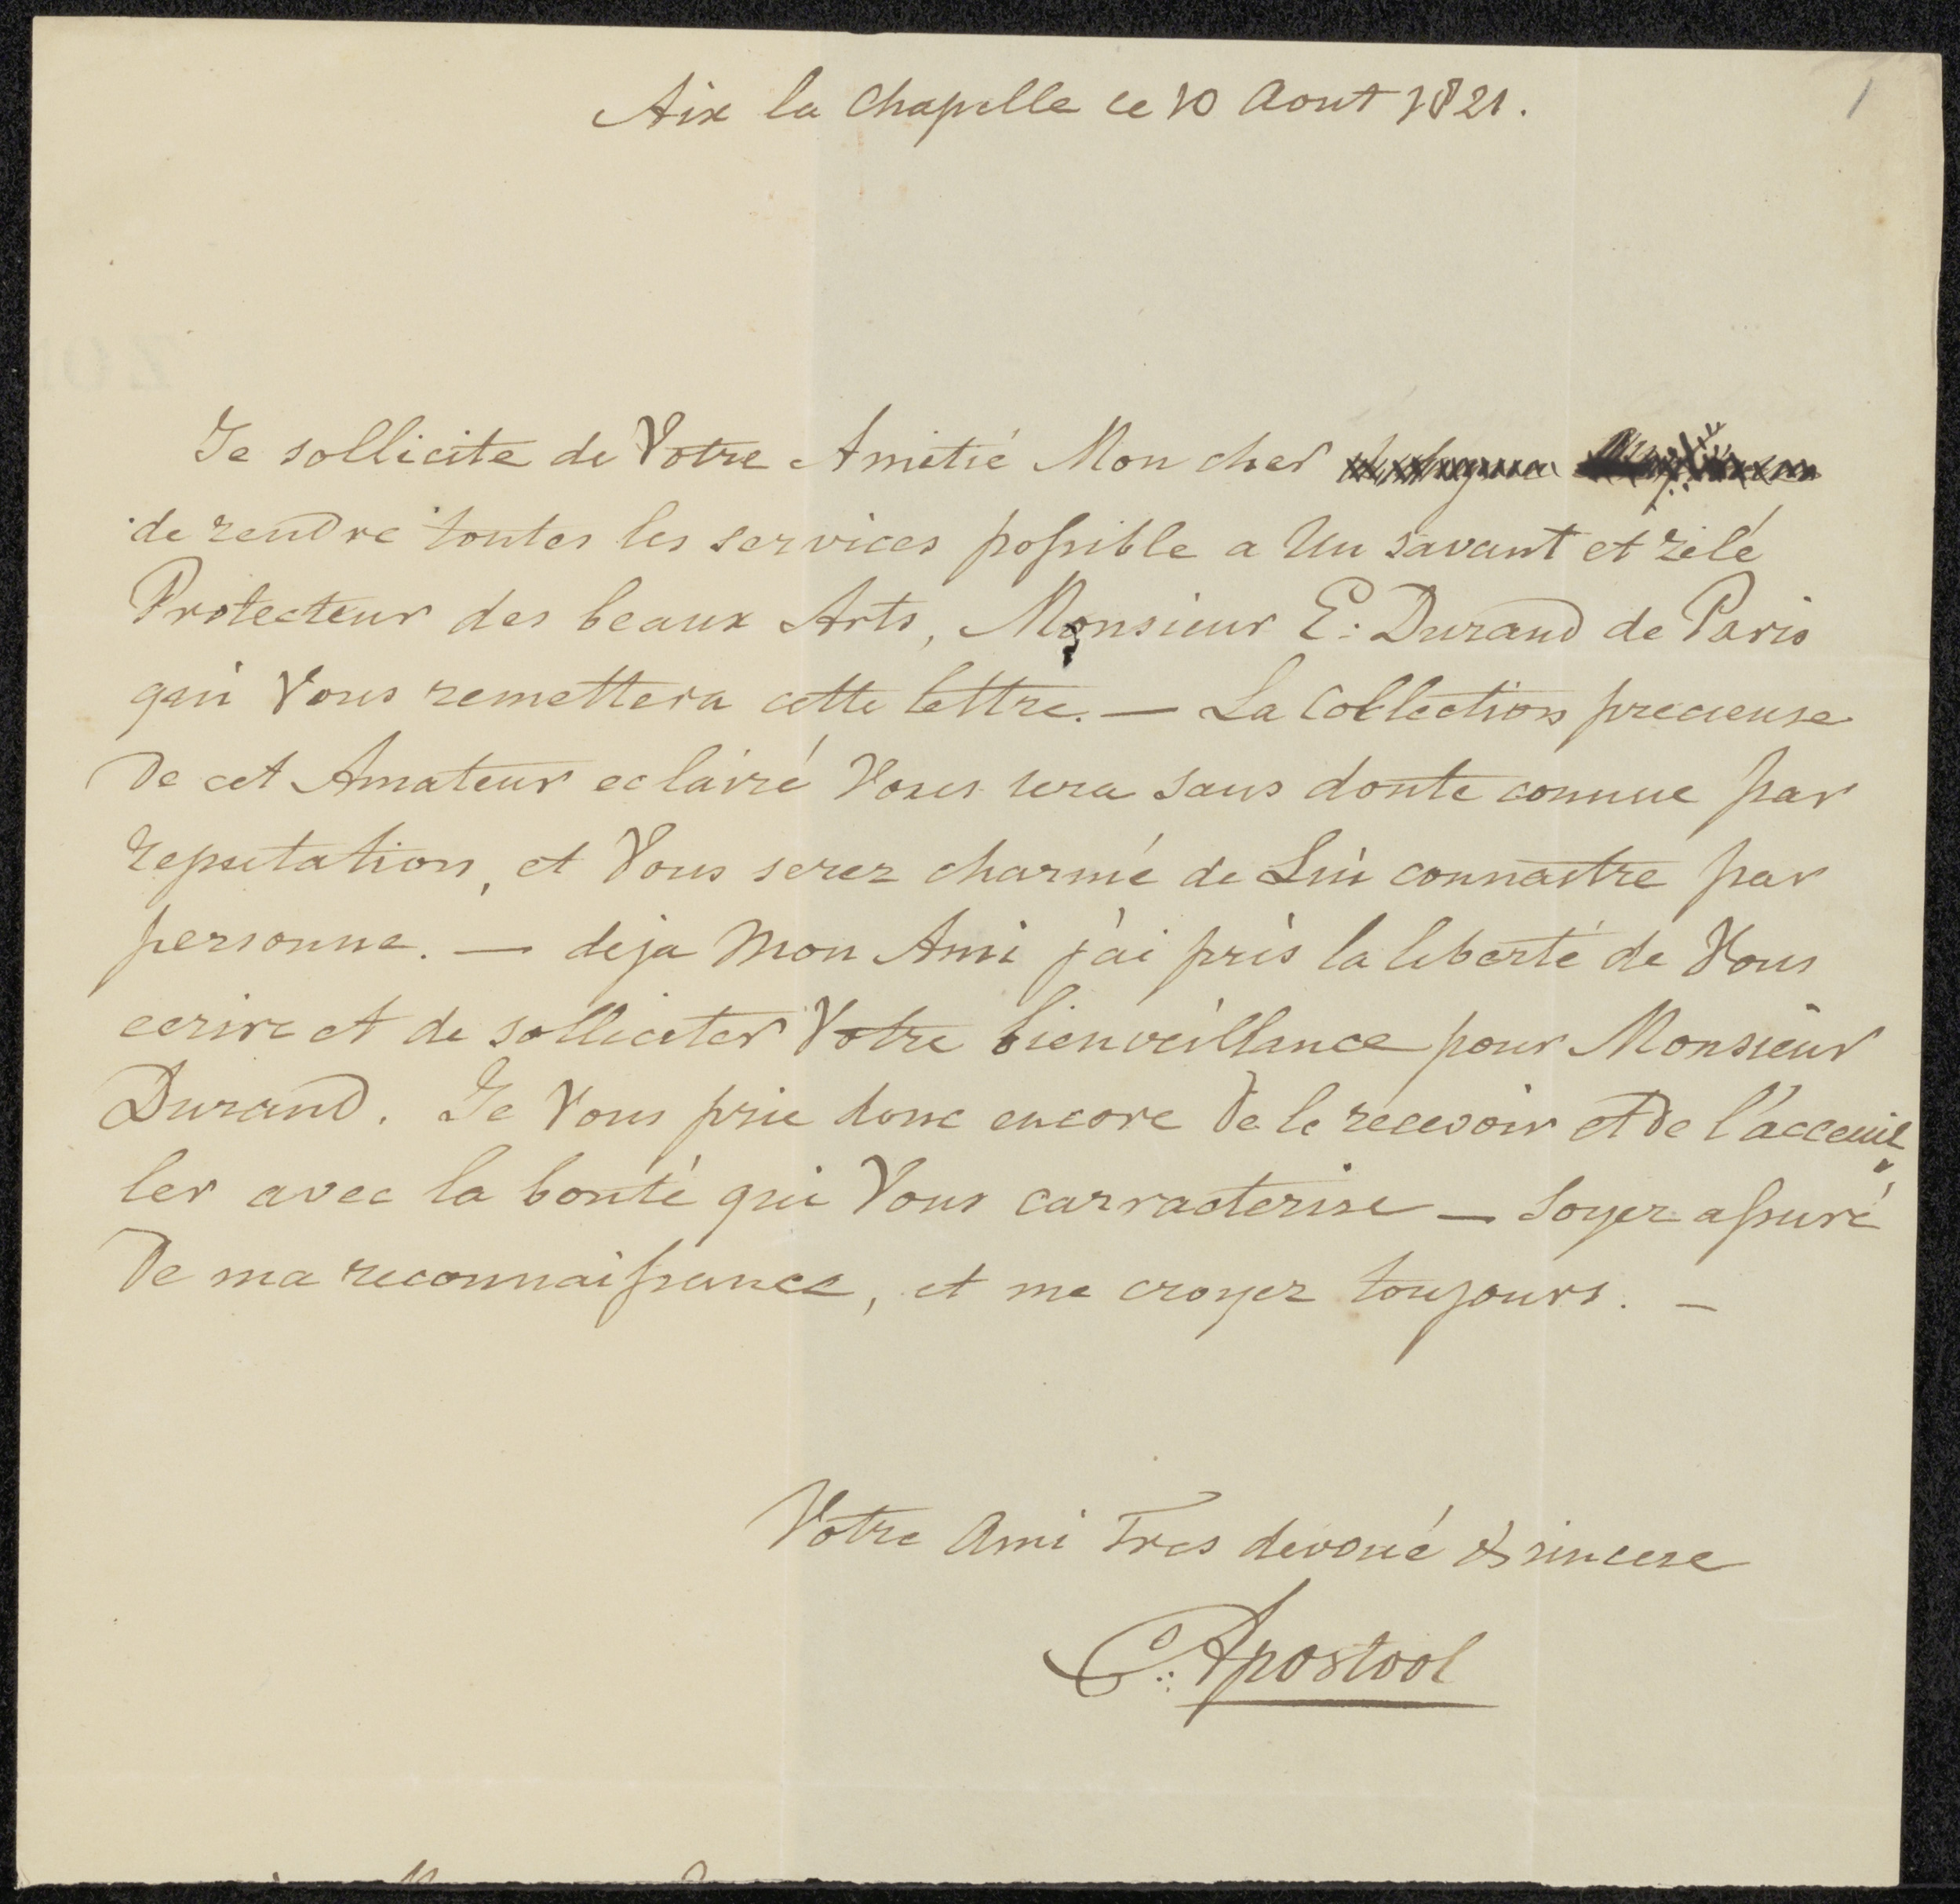 Aix la Chapelle ce 10 Aout 1821.
1
Je sollicite de Votre Amitié Mon cher
de rendre toutes les services possible a Un savant et zélé
Protecteur des beaux Arts, Monsieur E: Durand de Paris
qui Vous remettera cette lettre. — La Collection precieuse
de cet Amateur eclairé Vous sera sans doute connue par
reputation, et Vous serez charmé de Lui connaitre par
personne. — deja Mon Ami j'ai pris la liberté de Vous
ecrire et de solliciter Votre bienveillance pour Monsieur
Durand. Je Vous prie donc encore de le recevoir et de l'acceuil„
ler avec la bonté qui Vous carracterise — soyez assuré
de ma reconnaissance, et me croyez toujours. —
Votre Ami Tres devoué & sincere
C: Apostool